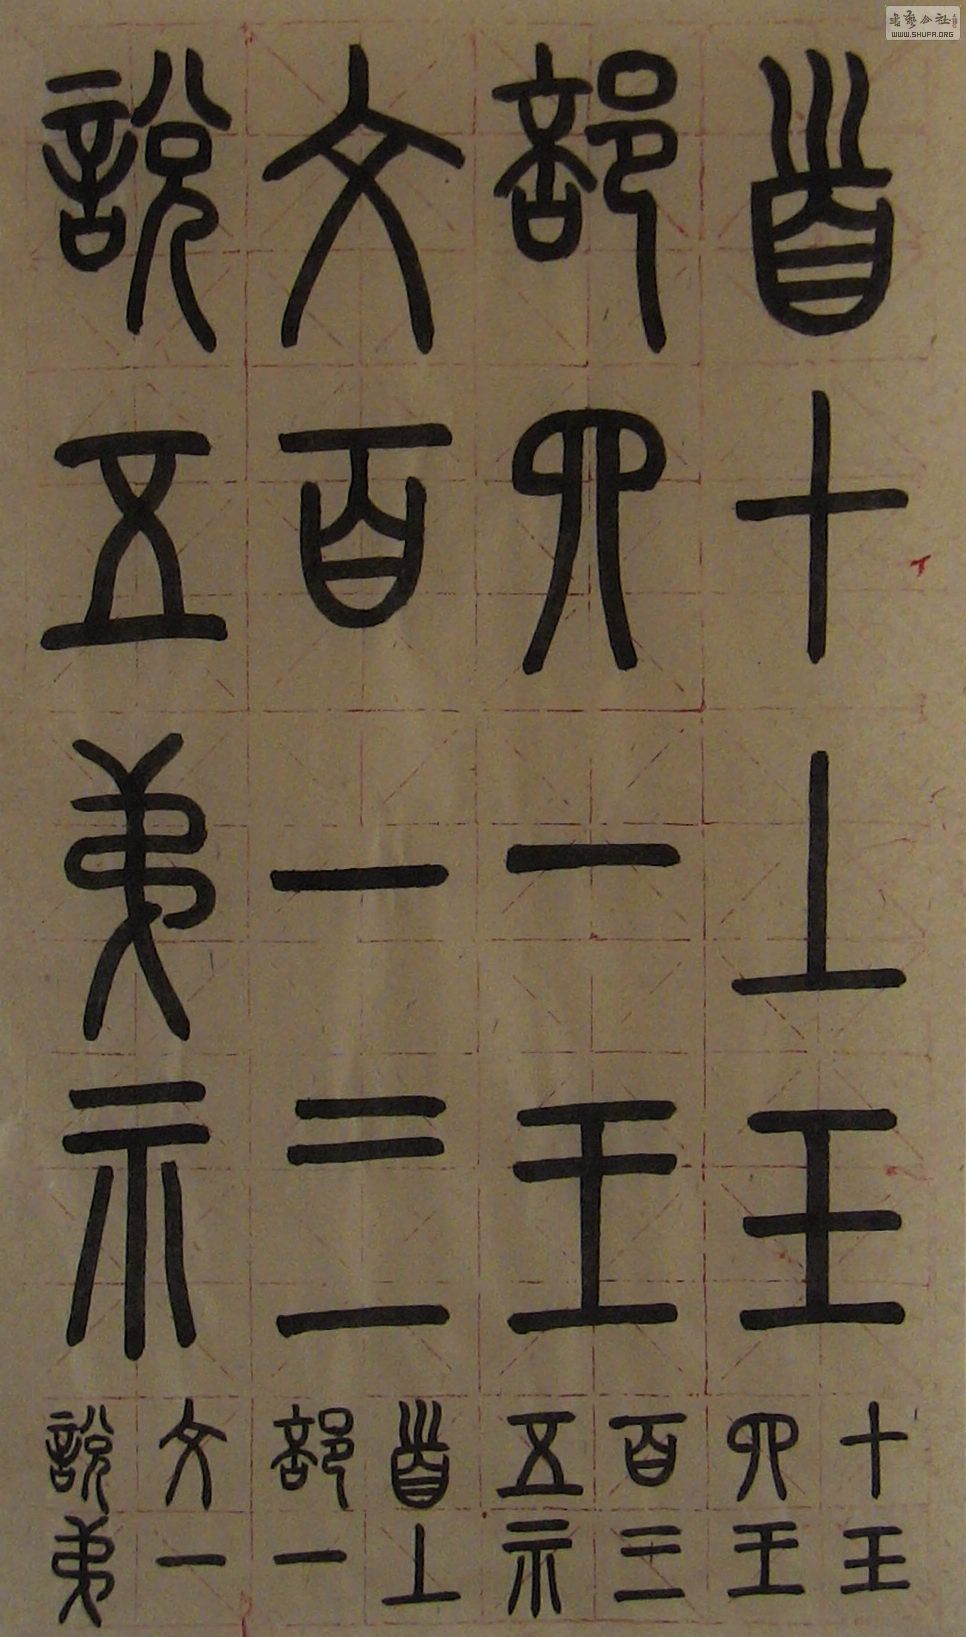 說文部首
五百四十
弟一一上
示三王玉
說文部首五百四十
弟一一上示三王玉
書藝公社
WWW.SHUFA.ORG